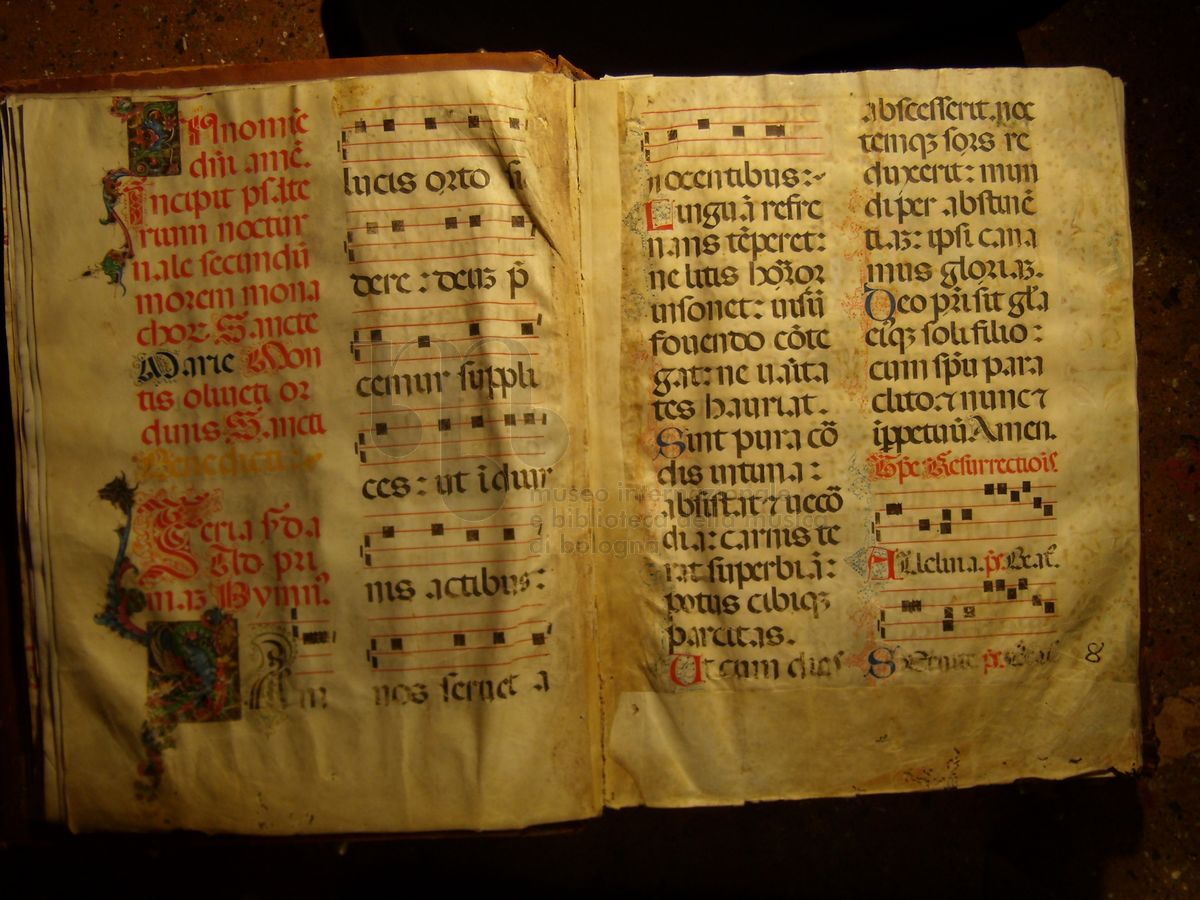 In nomīe
dm̄i amē.
Incipit psalte
rium noctur
nale secundū
morem mona
chorꝝ Sancte
Marie Mon
tis oliueti or
dinis Sancti
Benedicti:
Feria s̄da
Ad pri
maꝫ Hymnꝰ.
Iam
lucis orto si
dere : deuꝫ p̄
cemur suppli
ces : ut ī diur
nis actibus:
nos seruet a
nocentibus:
Linguā refre
nans tēperet:
ne litis hōror
insonet: uisū
fouendo cōte
gat: ne uaīta
tes hauriat.
Sint pura cō
dis intima :
absistat ⁊ uecō
dia: carnis te
rat superbiā:
potus cibiqꝫ
parcitas.
Ut cum dies
abscesserit. noc
temqꝫ sors re
duxerit: mun
di per abstinē
tiaꝫ: ipsi cana
mus gloriaꝫ.
Deo pr̄i sit gl̄a
eiqꝫ soli filio :
cum sp̄u para
clito. ⁊ nunc ⁊
ī ppetuū Amen.
Tp̄e Resurrectiōis
Alleluia. ps. Beatꝰ.
8
museo internazionale
e biblioteca della musica
di bologna